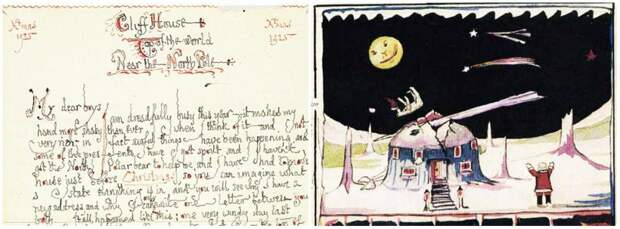 Xmas
1925
Cliff House
Top of the World
Near the North Pole
Xmas
1925
My dear boys,
I am dreadfully busy this year it makes my
hand more shaky than ever when I think of it and not
very rich: in fact awful things have been happening and
some of the presents have got spoilt and I haven't
got the North Polar bear to help me and I have had to move
house just before Christmas, so you can imagine what
a state everything is in and you will see why I have a
new address and why I can only write one letter between you
both. It all happened like this: one very windy day last